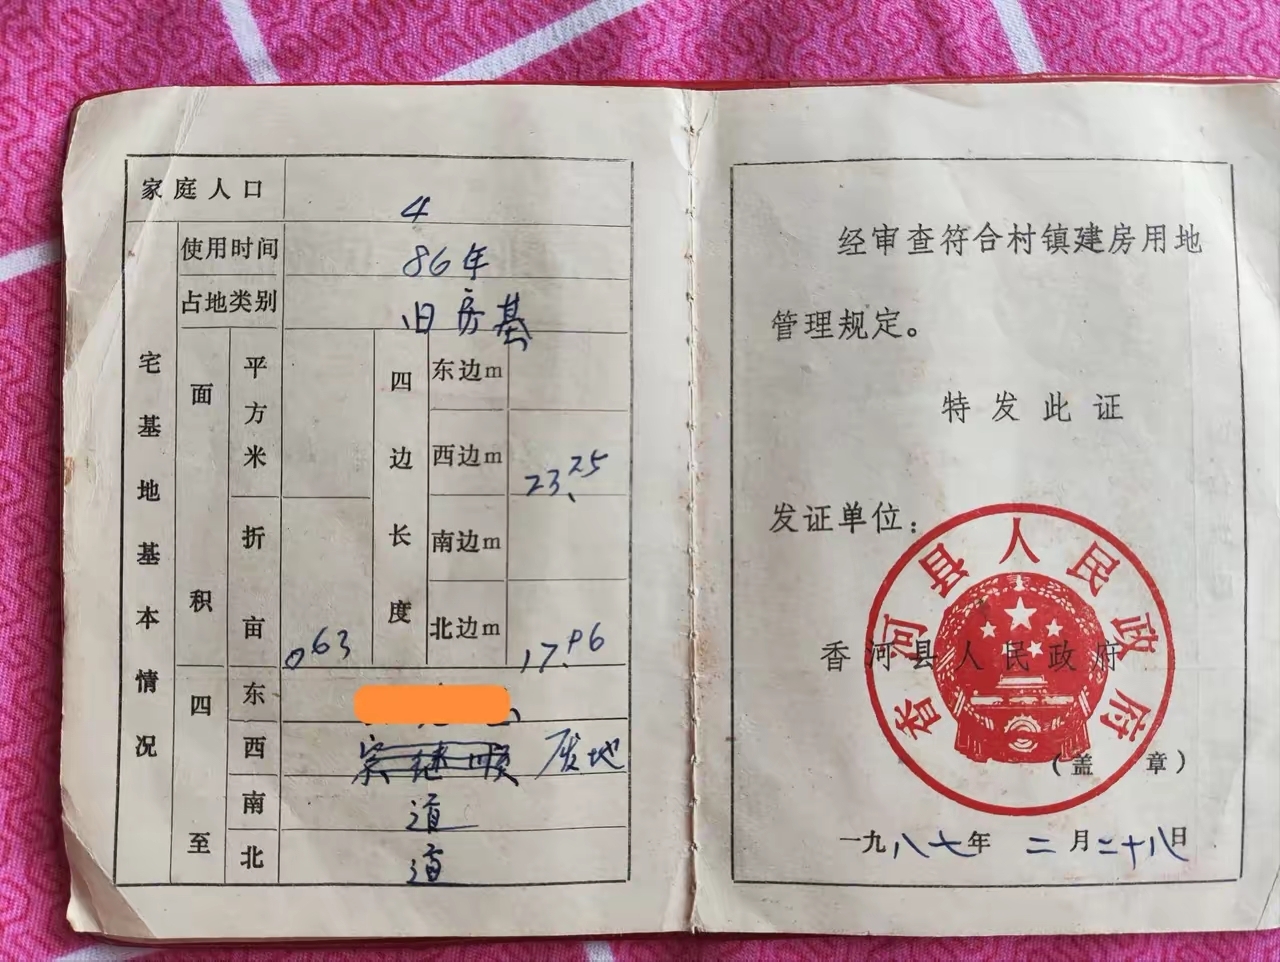 家庭人口 4
宅基地基本情况
使用时间 86年
占地类别 旧房基
面积
平方米
折亩 0.63
四边长度
东边m
西边m 23.25
南边m
北边m 17.96
四至
东
西 宗继顺 废地
南 道
北 道
经审查符合村镇建房用地
管理规定。
特发此证
发证单位：
香河县人民政府
香河县人民政府
（盖章）
一九八七年 二月二十八日